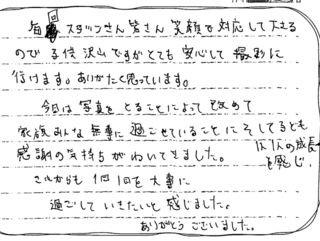 毎回スタッフさん皆さん笑顔で対応して下さる
ので子供沢山ですがとても安心して撮影に
行けます。ありがたく思っています。
今日は写真をとることによって改めて
家族みんな無事に過ごせていることにそして子ども
1人1人の成長
を感じ、
感謝の気持ちがわいてきました。
これからも1回1回を大事に
過ごしていきたいと感じました。
ありがとうございました。